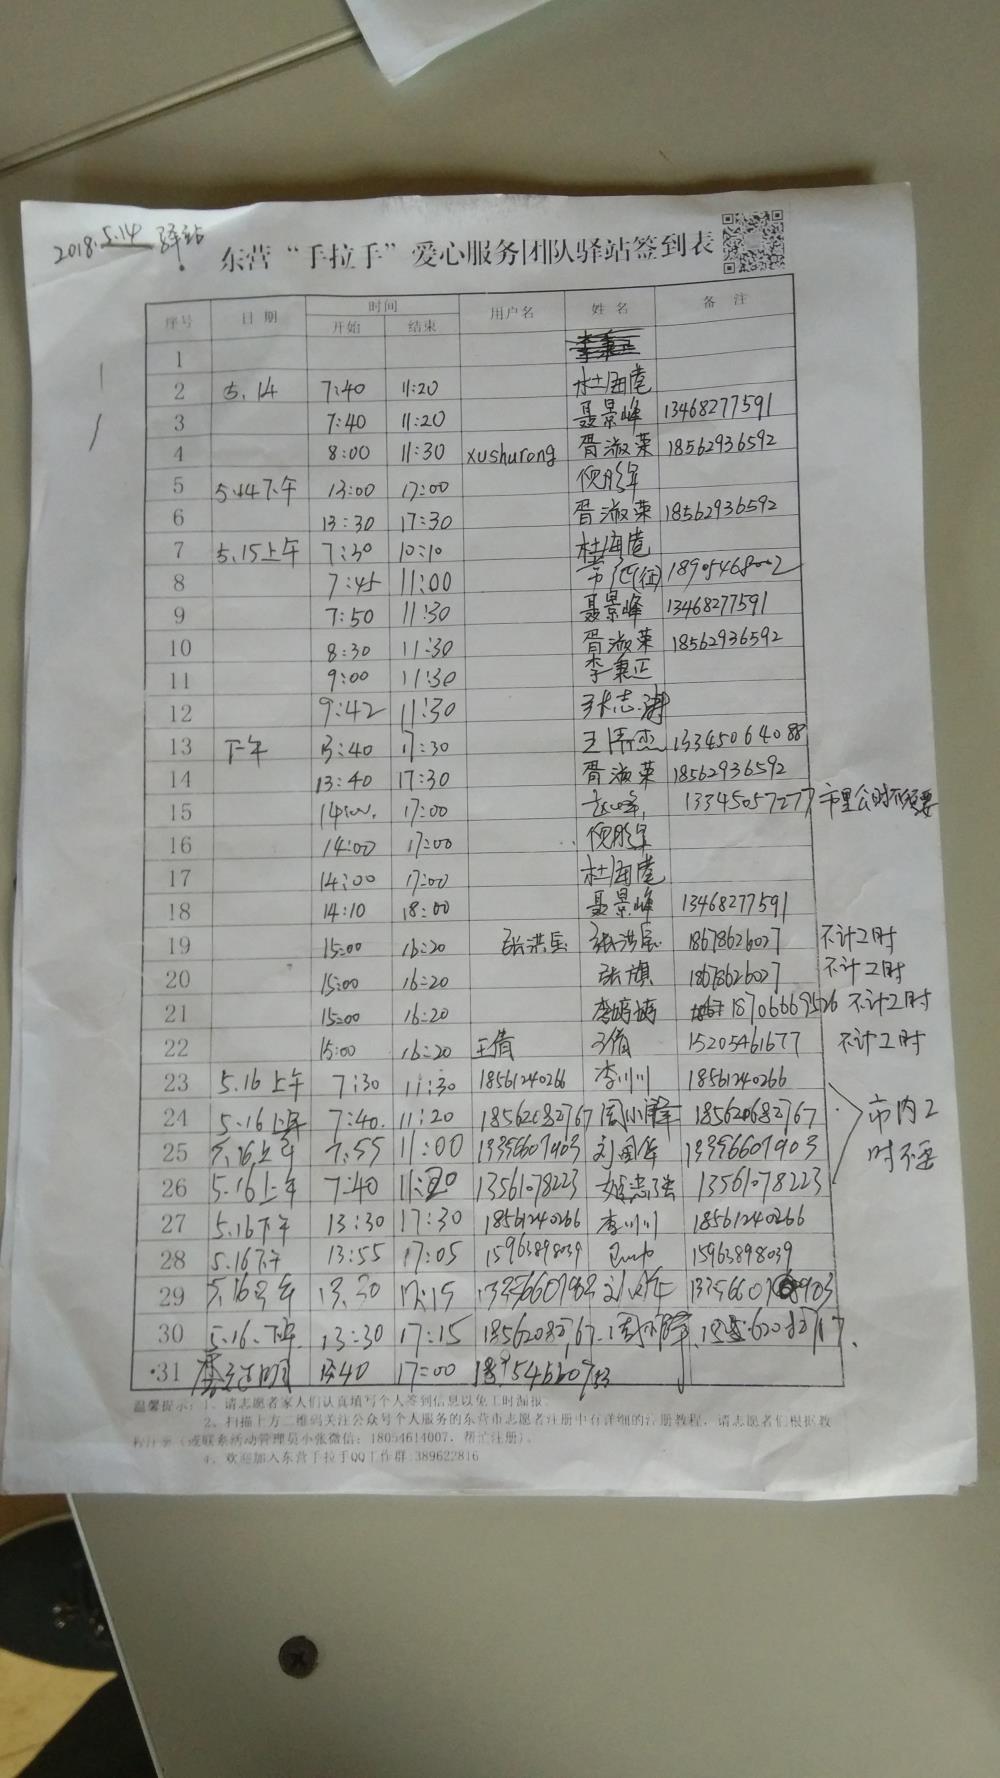 2018.5.14 驿站
东营“手拉手”爱心服务团队驿站签到表
序号 日期 时间 用户名 姓名 备注
开始 结束
1
2 5.14 7:40 11:20 杜海
3 7:40 11:20 聂景峰 13468277591
4 8:00 11:30 xushurong 胥淑荣 18562936592
5 5.14下午 13:00 17:00
6 13:30 17:30 胥淑荣 18562936592
7 5.15上午 7:30 10:10 杜海
8 7:45 11:00
9 7:50 11:30 聂景峰 13468277591
10 8:30 11:30 胥淑荣 18562936592
11 9:00 11:30 李秉正
12 9:42 11:30 张志
13 下午 13:40 17:30 王 杰 13345064088
14 13:40 17:30 胥淑荣 18562936592
15 17:00 13345057277 市里公时不须要
16 14:00 17:00
17 14:00 17:00 杜海
18 14:10 18:00 聂景峰 13468277591
19 15:00 16:20 张洪 张洪 18678626027 不计工时
20 15:00 16:20 张旗 18678626027 不计工时
21 15:00 16:20 李婷婷 18706669526 不计工时
22 15:00 16:20 王倩 王倩 15205461677 不计工时
23 5.16上午 7:30 11:30 18561240266 李川川 18561240266
24 5.16上午 7:40 11:20 18562082767 周小 18562082767 市内工
25 5.16上午 7:55 11:00 13356607903 刘国华 13356607903 时不要
26 5.16上午 7:40 13561078223 13561078223
27 5.16下午 13:30 17:30 18561240266 李川川 18561240266
28 5.16下午 13:55 17:05 15963898039 15963898039
29 5.16 13:30 17:15
30 5.16.下午 13:30 17:15
31 17:00
温馨提示：1、请志愿者家人们认真填写个人签到信息以免工时漏报。
2、扫描上方二维码关注公众号个人服务的东营市志愿者注册中有详细的注册教程，请志愿者们根据教
程注册（或联系活动管理员小张微信：18054614007，帮忙注册）。
4、欢迎加入东营手拉手QQ工作群：389622816